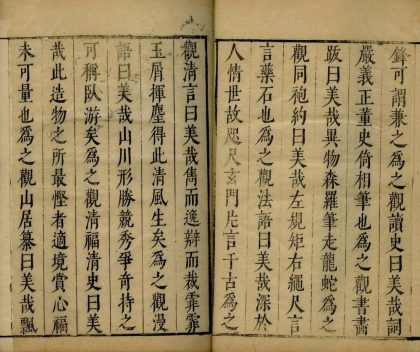 鋒可謂兼之為之觀讀史曰美哉詞
嚴義正董史倚相筆也為之觀書畫
跋曰美哉異物森羅筆走龍蛇為之
觀同袍約曰美哉左規矩右繩尺言
言藥石也為之觀法語曰美哉深於
人情世故咫尺玄門片言千古為之
觀清言曰美哉雋而適辯而裁霏霏
玉屑揮麈得此清風生矣為之觀漫
語曰美哉山川形勝競秀爭奇持之
可稱臥游矣為之觀清福清史曰美
哉此造物之所最慳者適境賞心福
未可量也為之觀山居纂曰美哉飄